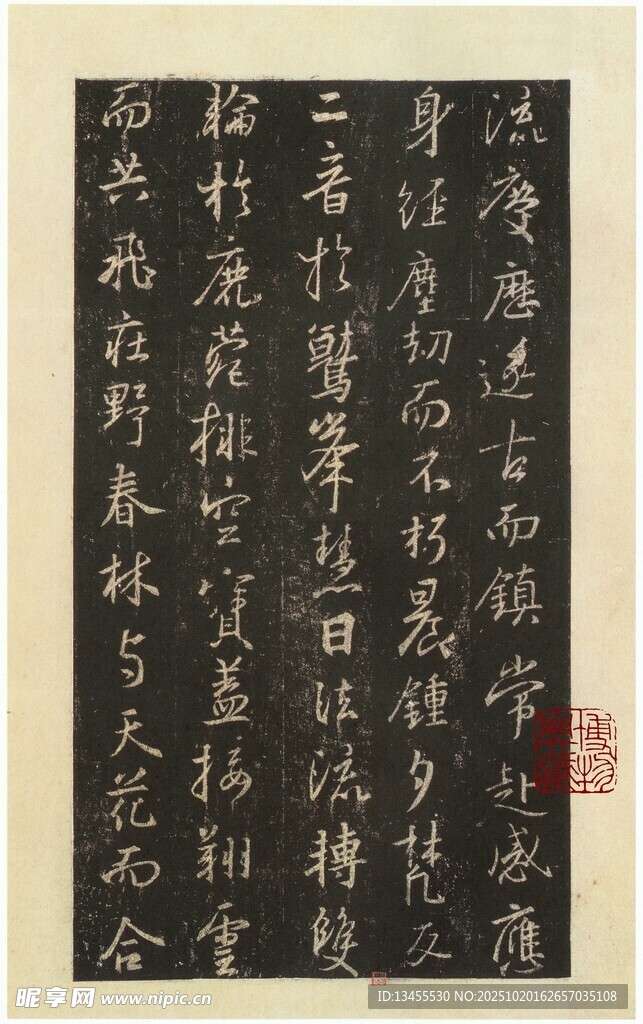 流慶歷遂古而鎮常赴感應
身經塵劫而不朽晨鍾夕梵交
二音於鷲峯慧日法流轉雙
輪於鹿菀排空寶蓋接翔雲
而共飛莊野春林与天花而合
昵享网 www.nipic.cn
ID:13455530 NO:20251020162657035108